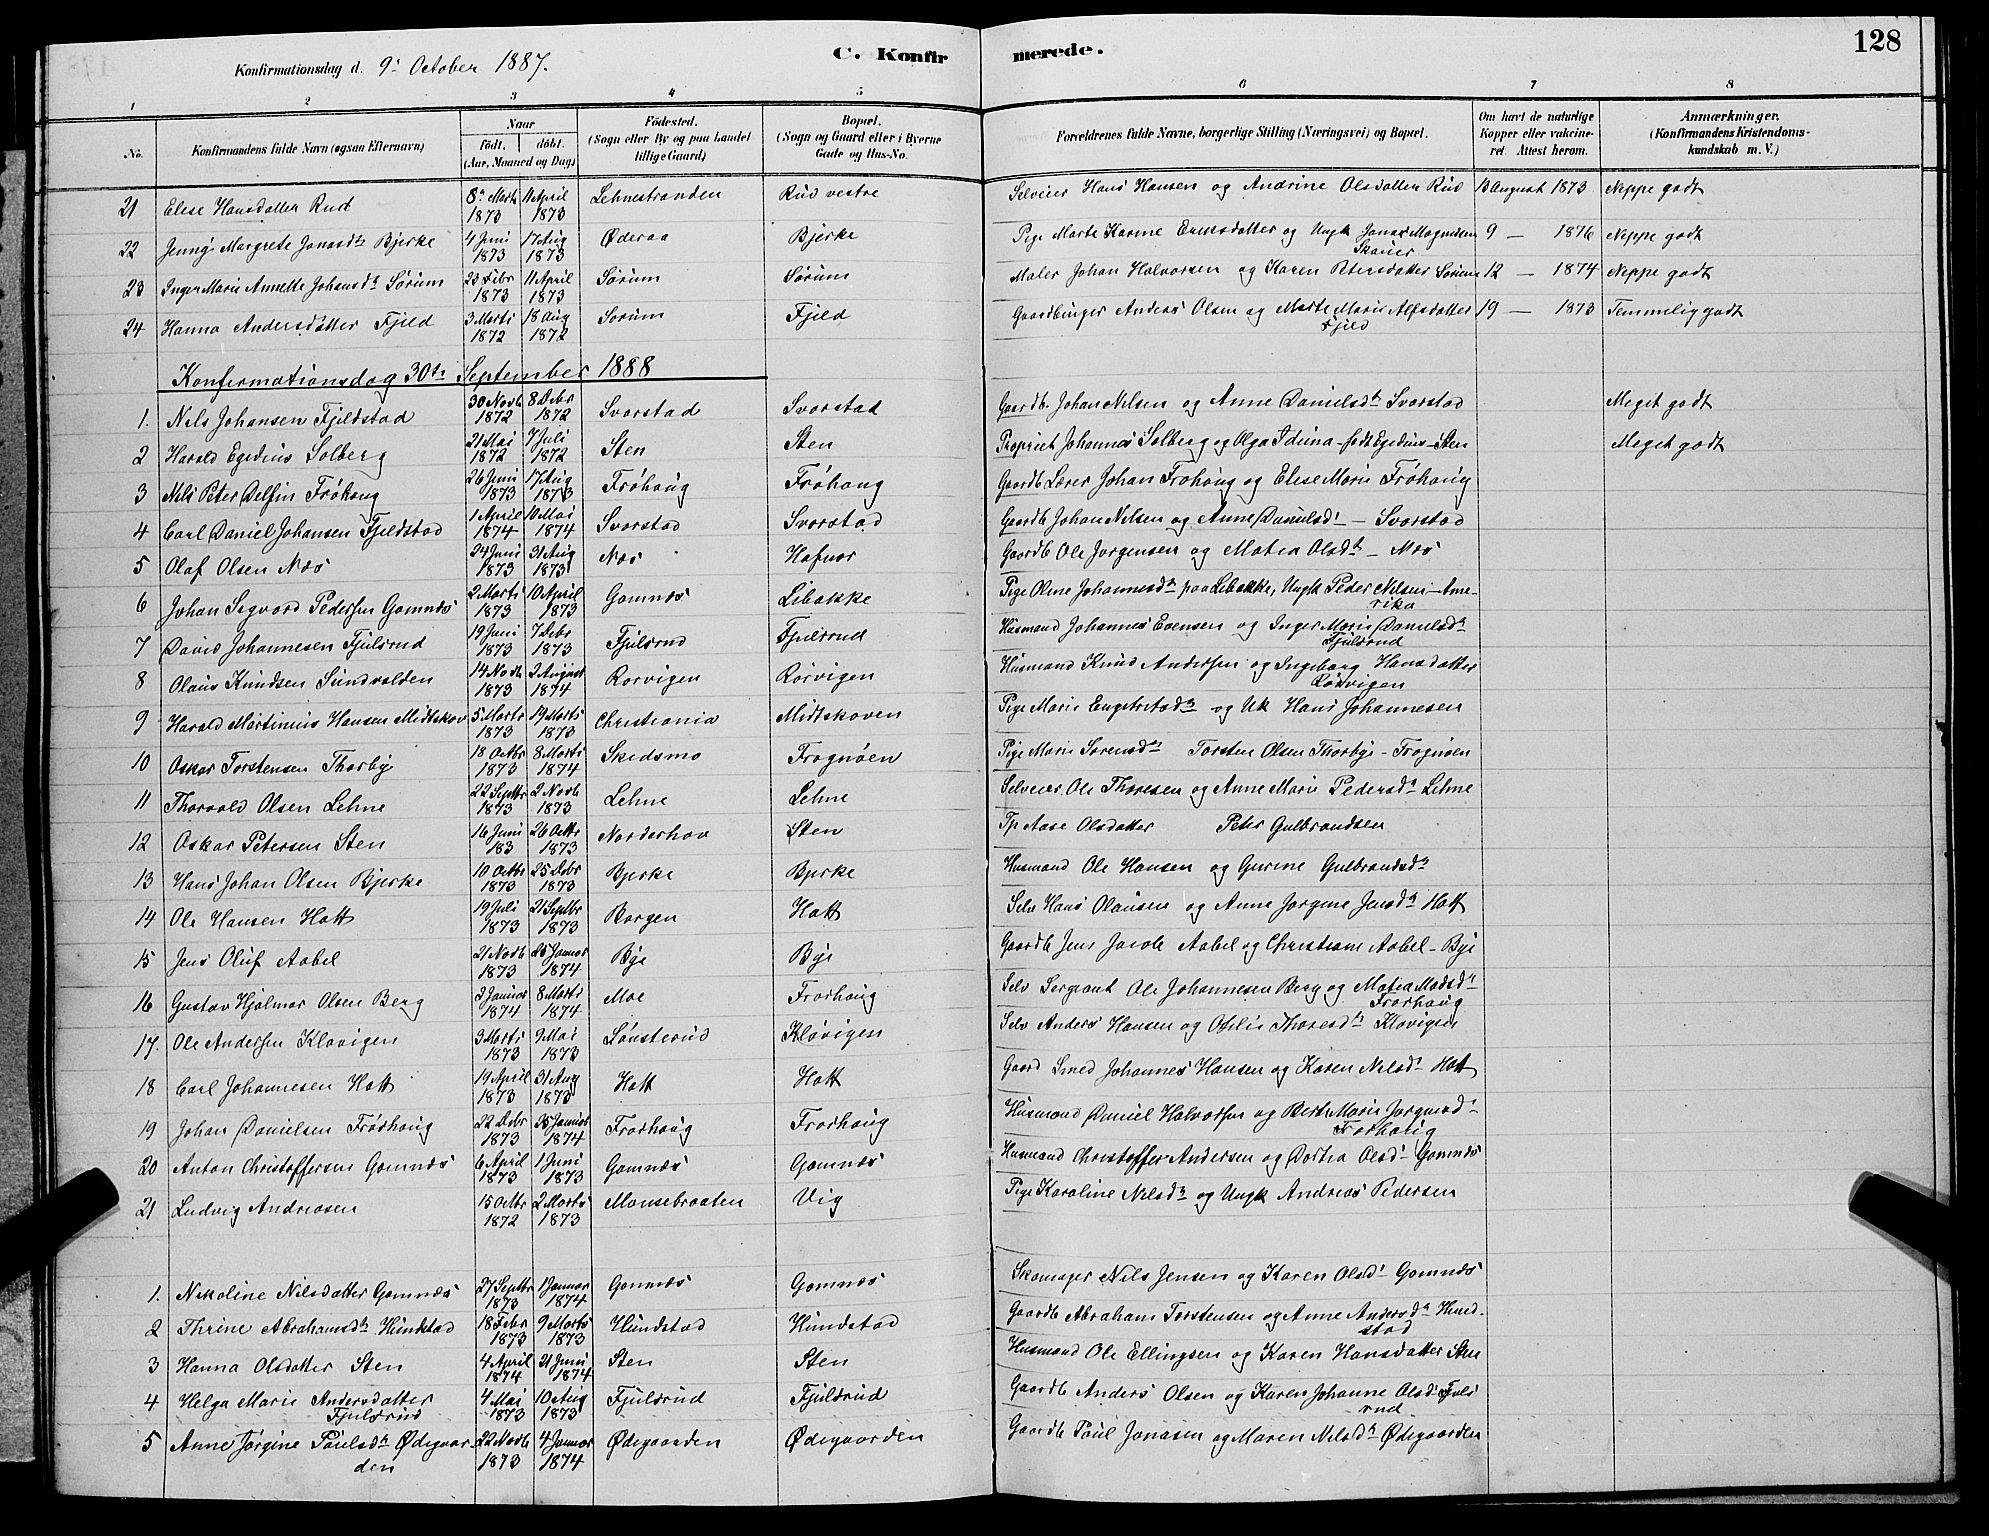 128
Konfirmationsdag d. 9de October 1887. C. Konfirmerede.
1 2 3 4 5 6 7 8
No. Konfirmandens fulde Navn (ogsaa Efternavn) Naar født. døbt. (Aar, Maaned og Dag) Fødested. (Sogn eller By og paa Landet tillige Gaard) Bopæl. (Sogn og Gaard eller i Byerne Gade og Hus-No. Forældrenes fulde Navne, borgerlige Stilling (Næringsvei) og Bopæl. Om havt de naturlige Kopper eller vaccineret. Attest herom. Anmærkninger. (Konfirmandens Kristendomskundskab m. V.)
21 Elise Hansdatter Rud 8de Marts 1873 11 April 1873 Lehnestranden Rud vestre Selveier Hans Hansen og Andrine Olsdatter Rud 13 August 1873 Neppe godt
22 Jenny Margrete Jonasdtr Bjerke 4 Juni 1873 17 Aug 1873 Øderaa Bjerke Pige Marte Karine Ericksdatter og Ungk Jonas Magnussen Skauer 9 — 1876 Neppe godt
23 Inger Marie Annette Johansdtr Sørum 23 Febr 1873 11 April 1873 Sørum Sørum Maler Johan Halvorsen og Karen Petersdatter Sørum 12 — 1874 Neppe godt
24 Hanna Andersdatter Fjeld 3 Marts 1872 18 Aug 1872 Sørum Fjeld Gaardbruger Anders Olsen og Marte Marie Alfsdatter Fjeld 19 — 1873 Temmelig godt
Konfirmationsdag 30te September 1888
1. Nils Johansen Fjeldstad 30 Novb 1872 8 Debr 1872 Svarstad Svarstad Gaardb. Johan Nilsen og Anne Danielsdtr Svarstad Meget godt
2 Harald Egedius Solberg 21 Mai 1872 7 Juli 1872 Sten Sten Propriet Johannes Solberg og Olga Iduna født Egedius - Sten Meget godt
3 Nils Peter Delfin Frøhaug 26 Juni 1873 17 Aug 1873 Frøhaug Frøhaug Gaardb Lærer Johan Frøhaug og Elise Marie Frøhaug
4 Carl Daniel Johansen Fjeldstad 1 April 1874 10 Mai 1874 Svarstad Svarstad Gaardb Johan Nilsen og Anne Danielsdtr — Svarstad
5 Olaf Olsen Næs 24 Juni 1873 31 Aug 1873 Næs Hafnor Gaardb Ole Jørgensen og Matea Olsdtr — Næs
6 Johan Sigvard Pedersen Gomnæs 2 Marts 1873 10 April 1873 Gomnæs Libakke Pige Oline Johannesdtr paa Libakke, Ungk Peder Nilsen - Amerika
7 David Johannesen Fjulsrud 19 Juni 1873 7 Debr 1873 Fjulsrud Fjulsrud Husmand Johannes Evensen og Inger Marie Danielsdtr Fjulsrud
8 Olaus Knudsen Sundvolden 14 Novb 1873 2 August 1874 Rørvigen Rørvigen Husmand Knud Andersen og Ingeborg Hansdatter Rørvigen
9 Harald Martinius Hansen Midtskov 5 Marts 1873 19 Marts 1873 Christiania Midtskoven Pige Marie Engebretsdtr og Uk Hans Johannesen
10 Oskar Torstensen Thorby 18 Octbr 1873 8 Marts 1874 Skedsmo Frognøen Pige Marie Sørensdtr Torsten Olsen Thorby - Frognøen
11 Thorvald Olsen Lehne 22 Septbr 1873 2 Novb 1873 Lehne Lehne Selveier Ole Thoresen og Anne Marie Pedersdtr Lehne
12 Oskar Petersen Sten 16 Juni 183 26 Octbr 1873 Norderhov Sten Tp Aase Olsdatter Peter Gulbrandsen
13 Hans Johan Olsen Bjerke 10 Octbr 1873 25 Debr 1873 Bjerke Bjerke Husmand Ole Hansen og Gurine Gulbrandsdtr
14 Ole Hansen Hatt 19 Juli 1873 21 Septbr 1873 Borgen Hatt Selv Hans Olausen og Anne Jørgine Jensdtr Hatt
15 Jens Oluf Aabel 21 Novb 1873 25 Januar 1874 Bye Bye Gaardb Jens Jacob Aabel og Christiane Aabel - Bye
16 Gustav Hjalmar Olsen Berg 2 Januar 1874 8 Marts 1874 Moe Frorhaug Selv Sergeant Ole Johannesen Berg og Matea Madsdtr Frorhaug
17. Ole Andersen Kløvigen 3 Marts 1873 9 Mai 1873 Lønsterud Kløvigen Selv Anders Hansen og Thoresdtr Kløvigen
18 Carl Johannesen Hatt 19 April 1873 31 Aug 1873 Hatt Hatt Gaard Smed Johannes Hansen og Karen Nilsdtr Hatt
19 Johan Danielsen Frørhaug 22 Debr 1873 25 Januar 1874 Frørhaug Frørhaug Husmand Daniel Halvorsen og Berthe Marie Jørgensdtr Frørhaug
20 Anton Christoffersen Gomnæs 6 April 1873 1 Juni 1873 Gomnæs Gomnæs Husmand Christoffer Andersen og Dortea Olsdtr Gomnæs
21 Ludvig Andreasen 15 Octbr 1872 2 Marts 1873 Monsebraaten Vig Pige Karoline Nilsdtr og Ungk Andreas Pedersen
1. Nikoline Nilsdatter Gomnæs 27 Septbr 1873 1 Januar 1874 Gomnæs Gomnæs Skomager Nils Jensen og Karen Olsdtr Gomnæs
2 Thrine Abrahamsdtr Hundstad 18 Febr 1873 9 Marts 1873 Hundstad Hundstad Gaardb Abraham Torstensen og Anne Andersdtr Hundstad
3 Hanna Olsdatter Sten 4 April 1874 21 Juni 1874 Sten Sten Husmand Ole Ellingsen og Karen Hansdatter Sten
4 Helga Marie Andersdatter Fjulsrud 4 Mai 1873 10 Aug 1873 Fjulsrud Fjulsrud Gaardb Anders Olsen og Karen Johanne Olsdtr Fjulsrud
5 Anne Jørgine Paulsdtr Ødegaarden 22 Novb 1873 4 Januar 1874 Ødegaarden Ødegaarden Gaardb Paul Jonasen og Maren Nilsdtr Ødegaarden